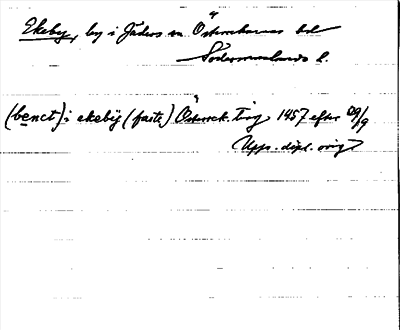 Ekeby, by i Jäders sn Österrekarnes hd
Södermanlands l.
(benct) i ekebÿ (faste) Österrek. ting 1457 efter 29/9
Upps. dipl. orig